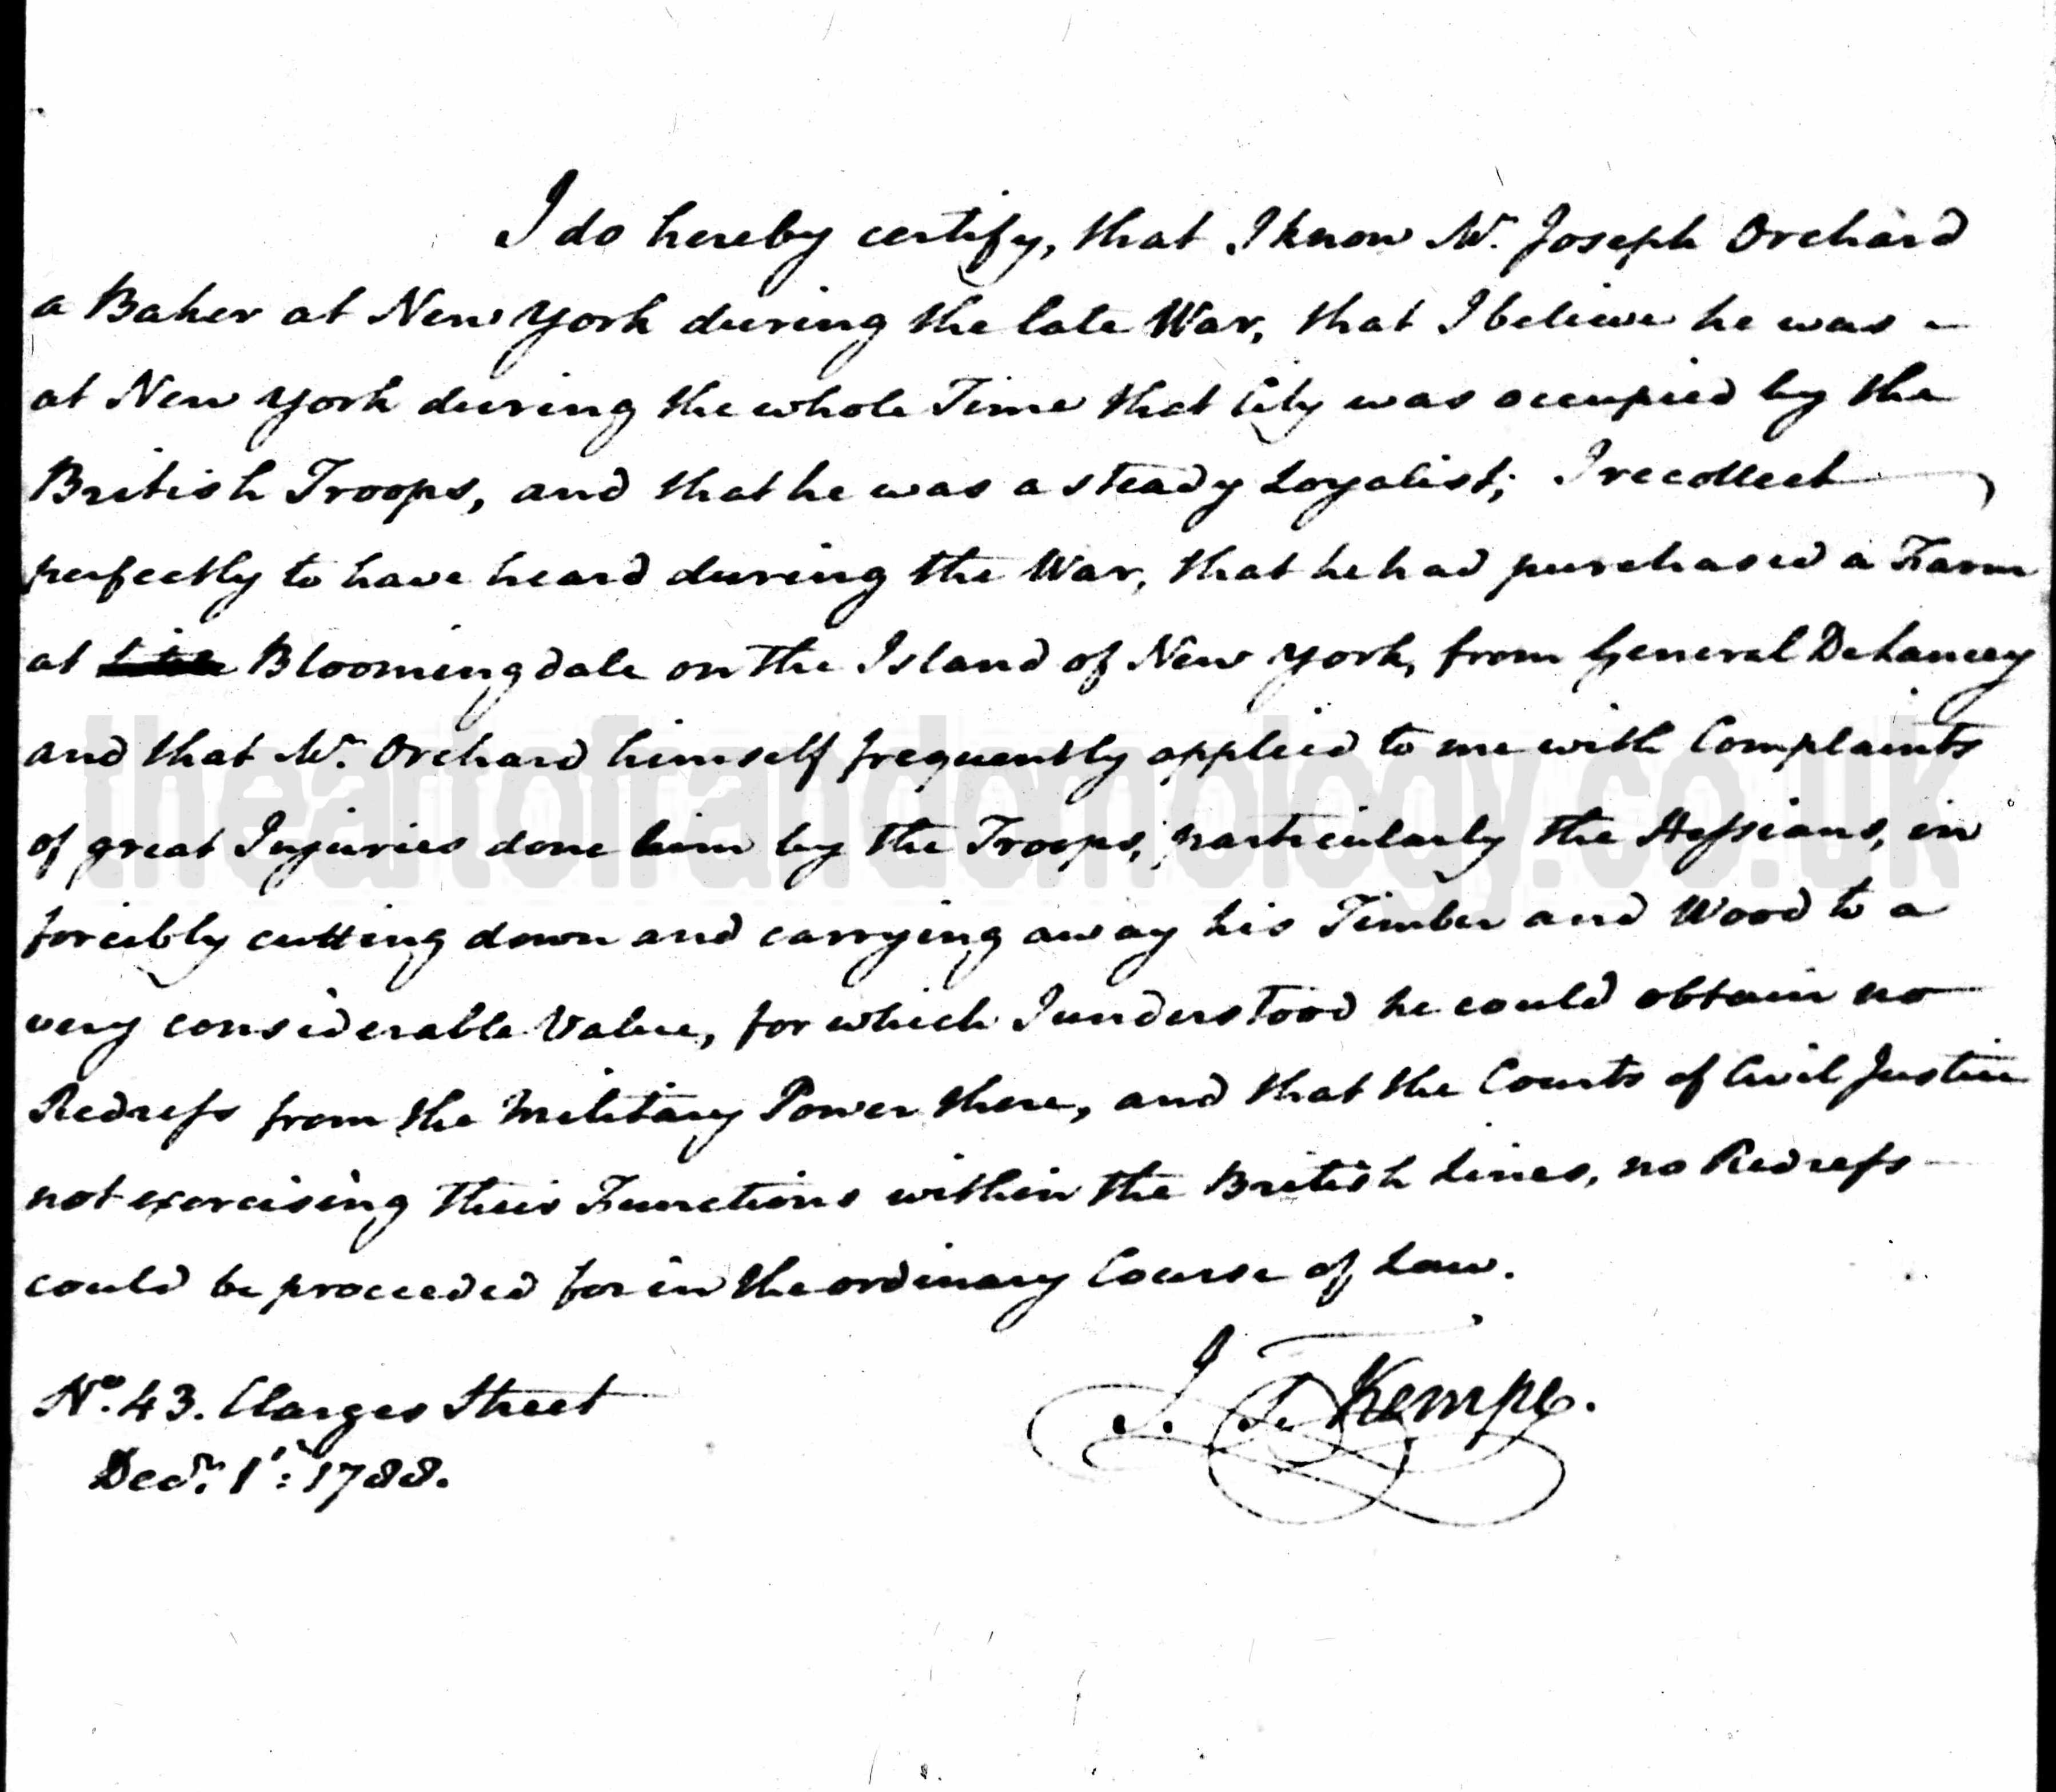 I do hereby certify, that I know Mr. Joseph Orchard
a Baker at New York during the late War, that I believe he was
at New York during the whole Time that City was occupied by the
British Troops, and that he was a steady Loyalist; I recollect
perfectly to have heard during the War, that he had purchased a Farm
at Bloomingdale on the Island of New York, from General DeLancey
and that Mr. Orchard himself frequently applied to me with Complaints
theartofrandomology.co.uk
of great Injuries done him by the Troops, particularly the Hessians, in
forcibly cutting down and carrying away his Timber and Wood to a
very considerable Value, for which I understood he could obtain no
Redress from the Military Power there, and that the Courts of Civil Justice
not exercising their Functions within the British Lines, no Redress
could be proceeded for in the ordinary Course of Law.
J. T. Kempe.
No. 43. Clarges Street
Decr. 1st: 1788.